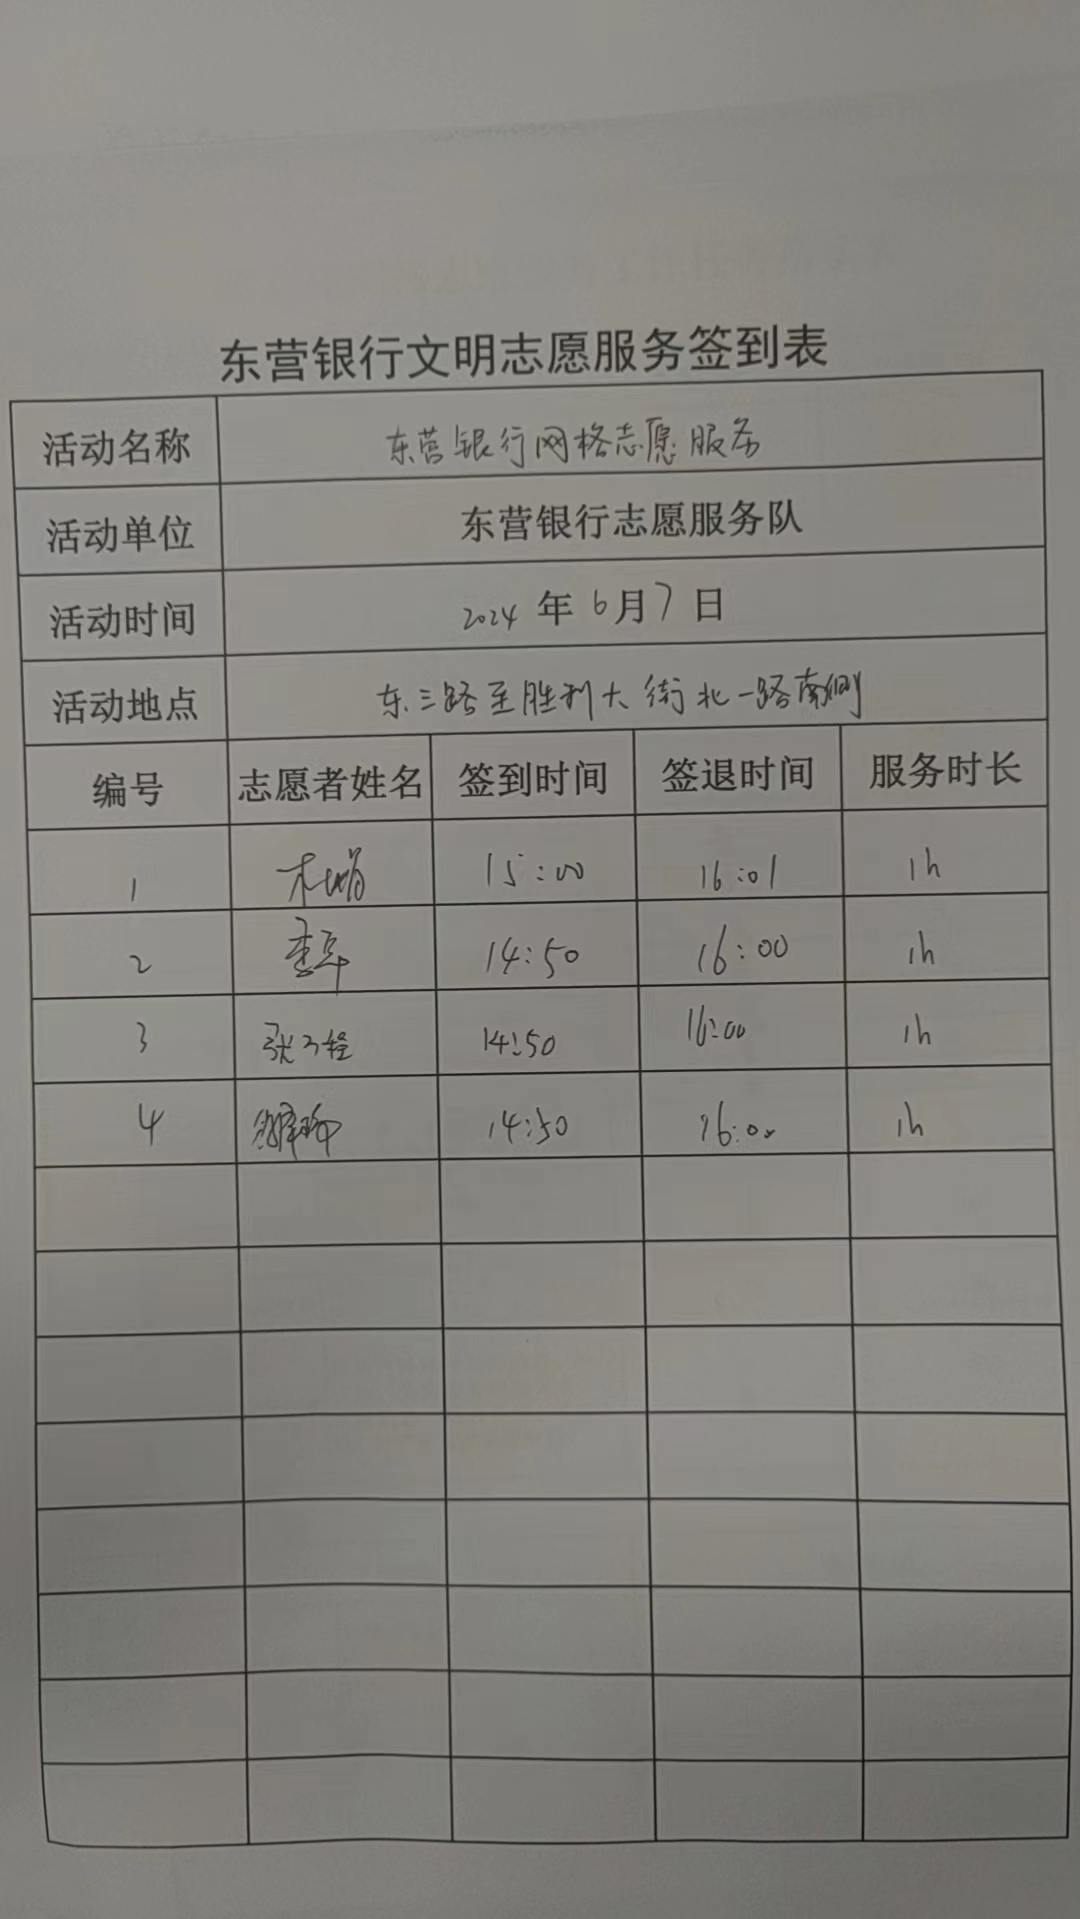 东营银行文明志愿服务签到表
活动名称 东营银行网格志愿服务
活动单位 东营银行志愿服务队
活动时间 2024 年 6月7日
活动地点 东三路至胜利大街北一路南侧
编号 志愿者姓名 签到时间 签退时间 服务时长
1 15:00 16:01 1h
2 14:50 16:00 1h
3 14:50 16:00 1h
4 14:50 16:00 1h